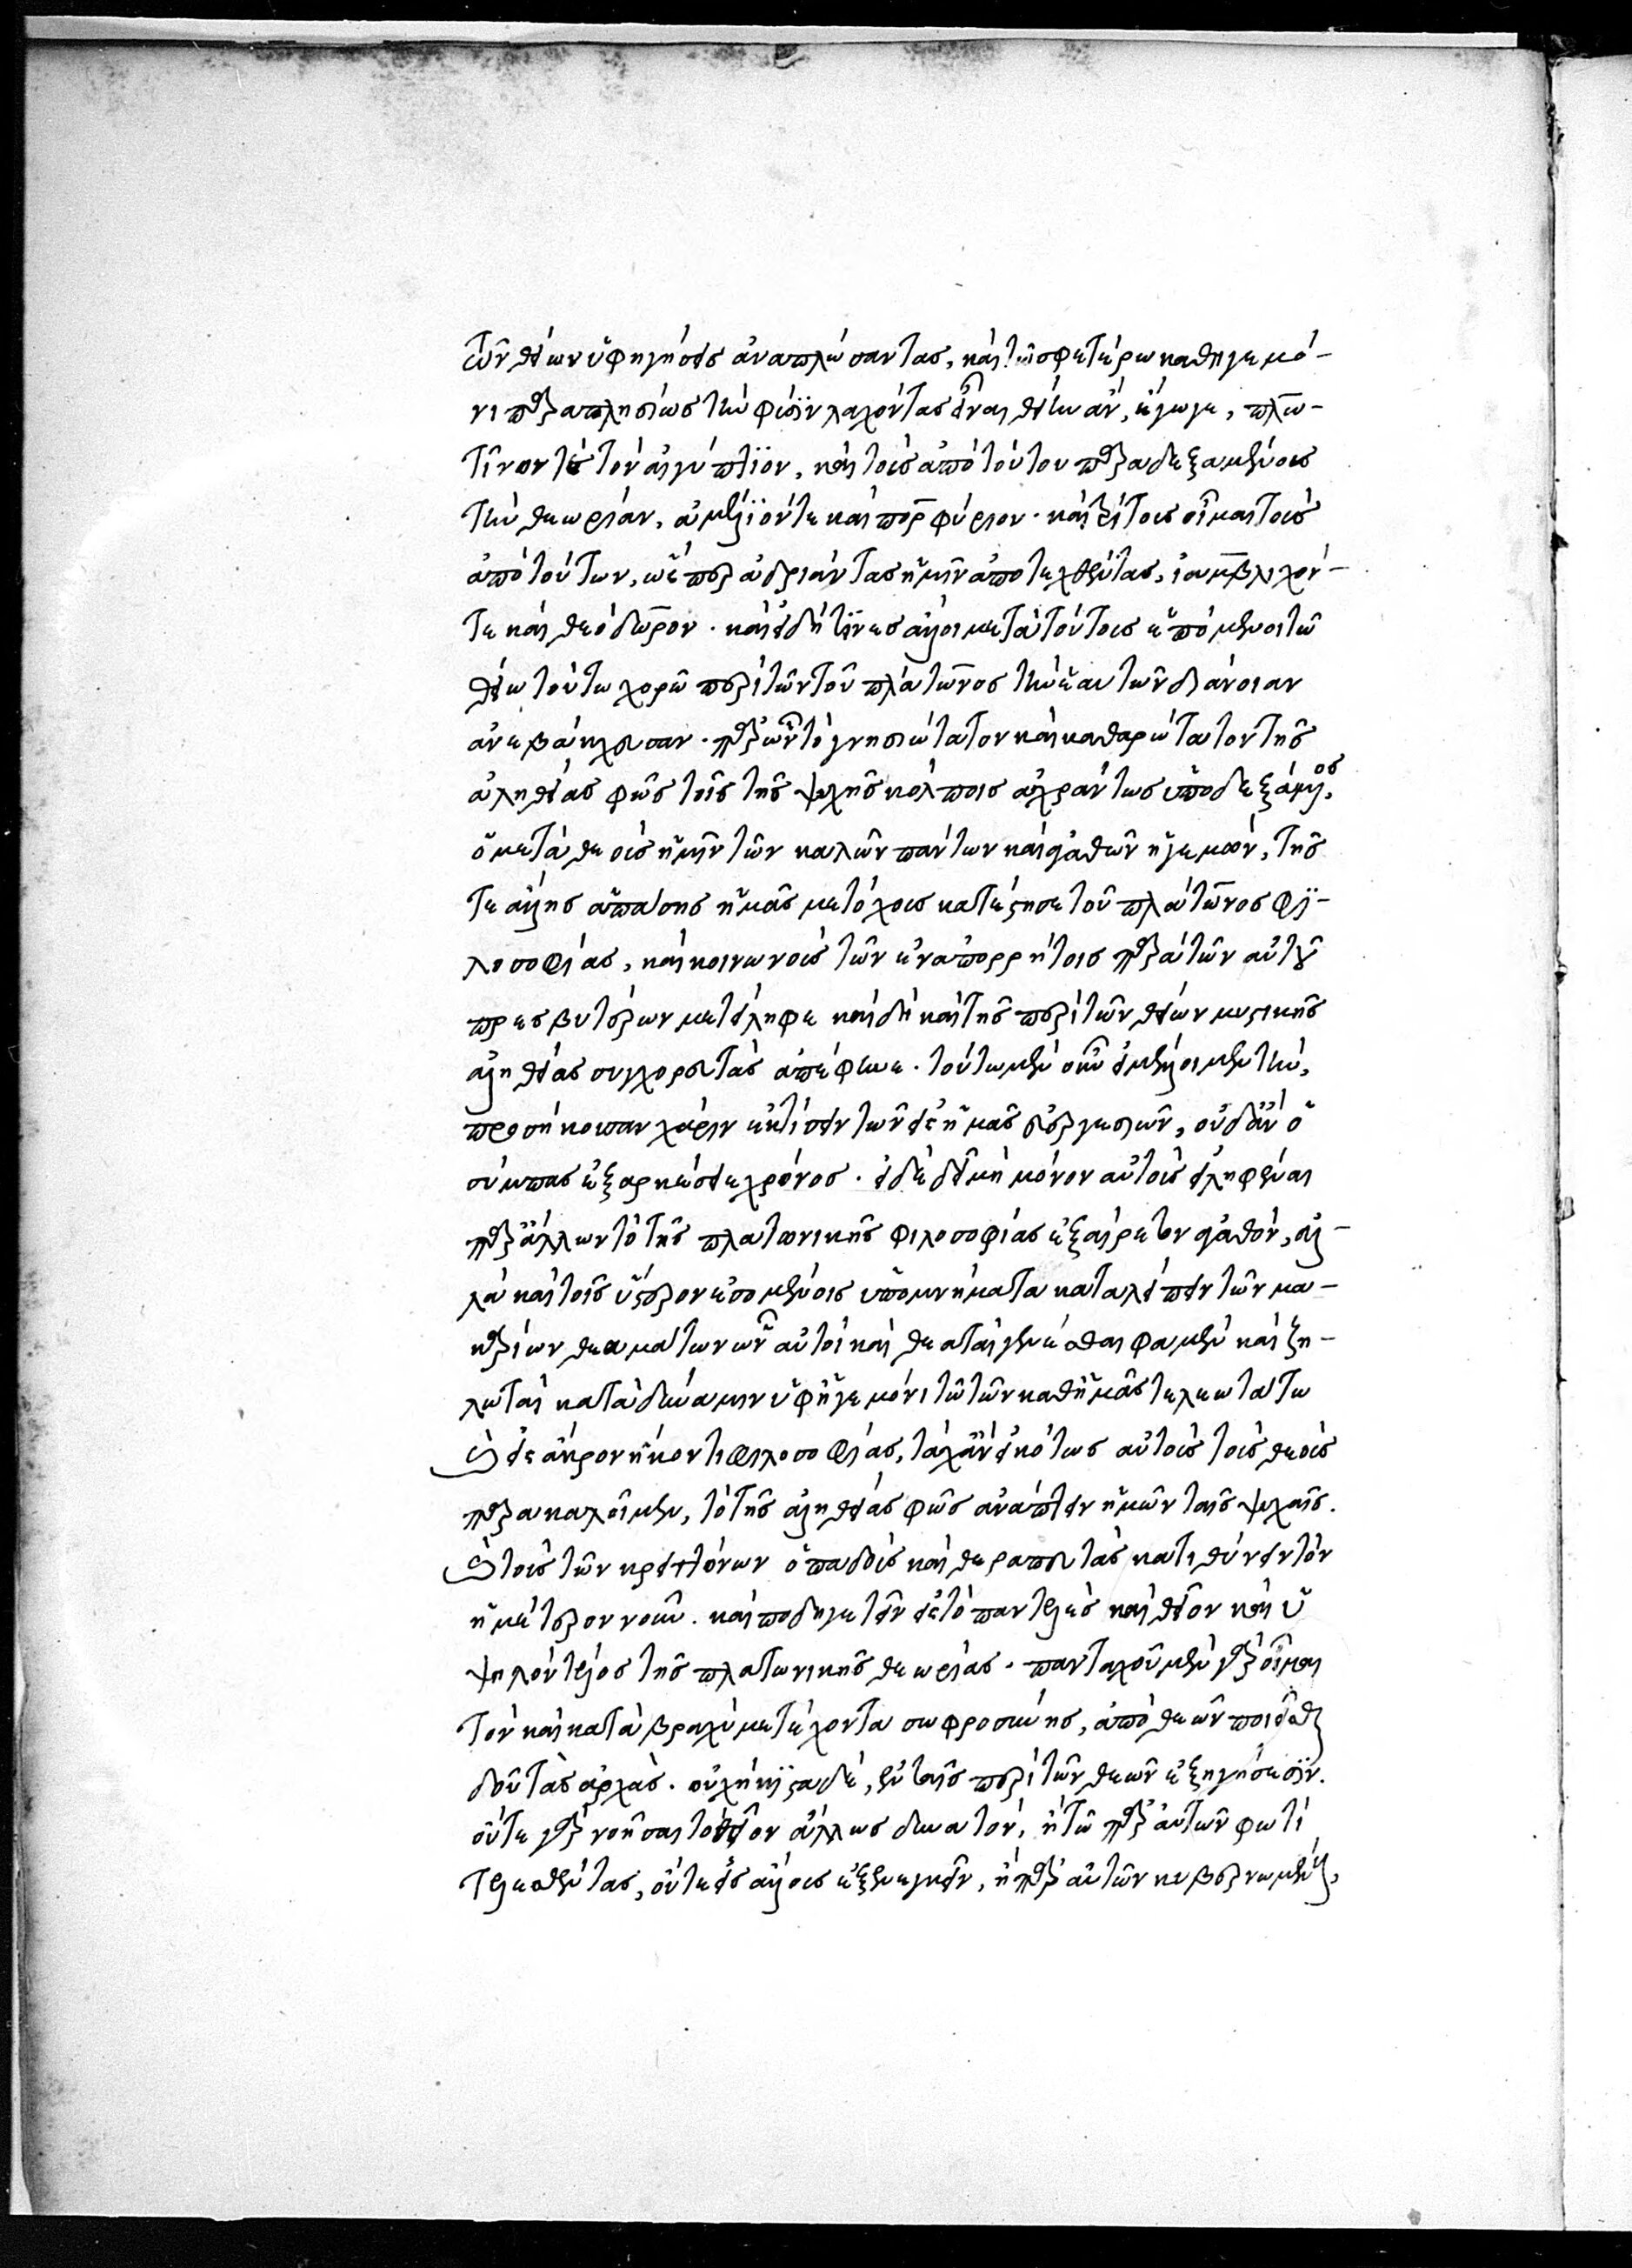 τῶν θείων ὑφηγήσεις ἀναπλώσαντας, καὶ τῶ σφετέρω καθηγεμό-
νι παραπλησίως τὴν φύσϊν λαχόντας εἶναι θείην ἂν, ἔγωγε, πλω-
τῖνον τὲ τὸν αἰγύπτϊον, καὶ τοὺς ἀπὸ τούτου παραδεξαμένους
τὴν θεωρίαν, ἀμέλϊόν τε καὶ πορφύριον. καὶ τρίτους οἶμαι τοὺς
ἀπὸ τούτων, ὥσπερ ἀδριάντας ἡμῖν ἀποτεχθέντας, ἰαμβλιχόν-
τε καὶ θεόδωρον. καὶ εἰ δή τϊνες ἄλλοι μετὰ τούτους ἑπόμενοι τῶ
θείω τούτω χορῶ περὶ τῶν τοῦ πλάτωνος τὴν ἑαυτῶν διάνοιαν
ἀνεβάκχευσαν. παρ' ὧν τὸ γνησιώτατον καὶ καθαρώτατον τῆς
ἀληθείας φῶς τοῖς τῆς ψυχῆς κόλποις ἀχράντως ὑποδεξάμενος,
ὁ μετὰ θεοὺς ἡμῖν τῶν καλῶν πάντων καὶ ἀγαθῶν ἡγεμὼν, τῆς
τε ἄλλης ἁπάσης ἡμᾶς μετόχους κατέστησε τοῦ πλάτωνος φϊ-
λοσοφίας, καὶ κοινωνοὺς τῶν ἐν ἀπορρήτοις παρὰ τῶν αὐτοῦ
πρεσβυτέρων μετείληφε καὶ δὴ καὶ τῆς περὶ τῶν θείων μυστικῆς
ἀληθείας συγχορευτὰς ἀπέφηνε. τούτω μὲν οὖν εἰ μέλλοιμεν τὴν,
προσήκουσαν χάριν ἐκτίσειν τῶν εἰς ἡμᾶς εὐεργεσιῶν, οὐδ' ἂν ὁ
σύμπας ἐξαρκέσειε χρόνος. εἰ δὲ δεῖ μὴ μόνον αὐτοὺς εἰληφέναι
παρ' ἄλλων τὸ τῆς πλατωνικῆς φιλοσοφίας ἐξαίρετον ἀγαθόν, ἀλ-
λὰ καὶ τοῖς ὕστερον ἐσομένοις ὑπομνήματα καταλείπειν τῶν μα-
καρίων θεαμάτων ὧν αὐτοὶ καὶ θεαταὶ γενέσθαι φαμὲν καὶ ζη-
λωταὶ κατὰ δύναμιν ὑφ' ἡγεμόνι τῶ τῶν καθ' ἡμᾶς τελεωτάτω
καὶ εἰς ἄκρον ἥκοντι φιλοσοφίας, τάχ' ἂν εἰκότως αὐτοὺς τοὺς θεοὺς
παρακαλοῖμεν, τὸ τῆς ἀληθείας φῶς ἀνάπτειν ἡμῶν ταῖς ψυχαῖς.
καὶ τοὺς τῶν κρειττόνων ὀπαδοὺς καὶ θεραπευτὰς κατιθύνειν τὸν
ἡμέτερον νοῦν. καὶ ποδηγετεῖν εἰς τὸ παντελὲς καὶ θεῖον καὶ ὑ
ψηλὸν τέλος τῆς πλατωνικῆς θεωρίας. πανταχοῦ μὲν γὰρ οἶμαι
τὸν καὶ κατὰ βραχὺ μετέχοντα σωφροσύνης, ἀπὸ θεῶν ποιεῖσθαι
δοῦ τὰς ἀρχὰς. οὐχ ἥκϊστα δὲ, ἐν ταῖς περὶ τῶν θεῶν ἐξηγήσεσϊν.
οὔτε γὰρ νοῆσαι τὸ θεῖον ἄλλως δυνατόν, ἢ τῶ παρ' αὐτῶν φωτὶ
τελεσθέντας, οὔτε εἰς ἄλλους ἐξενεγκεῖν, ἢ παρ' αὐτῶν κυβερνωμένους,